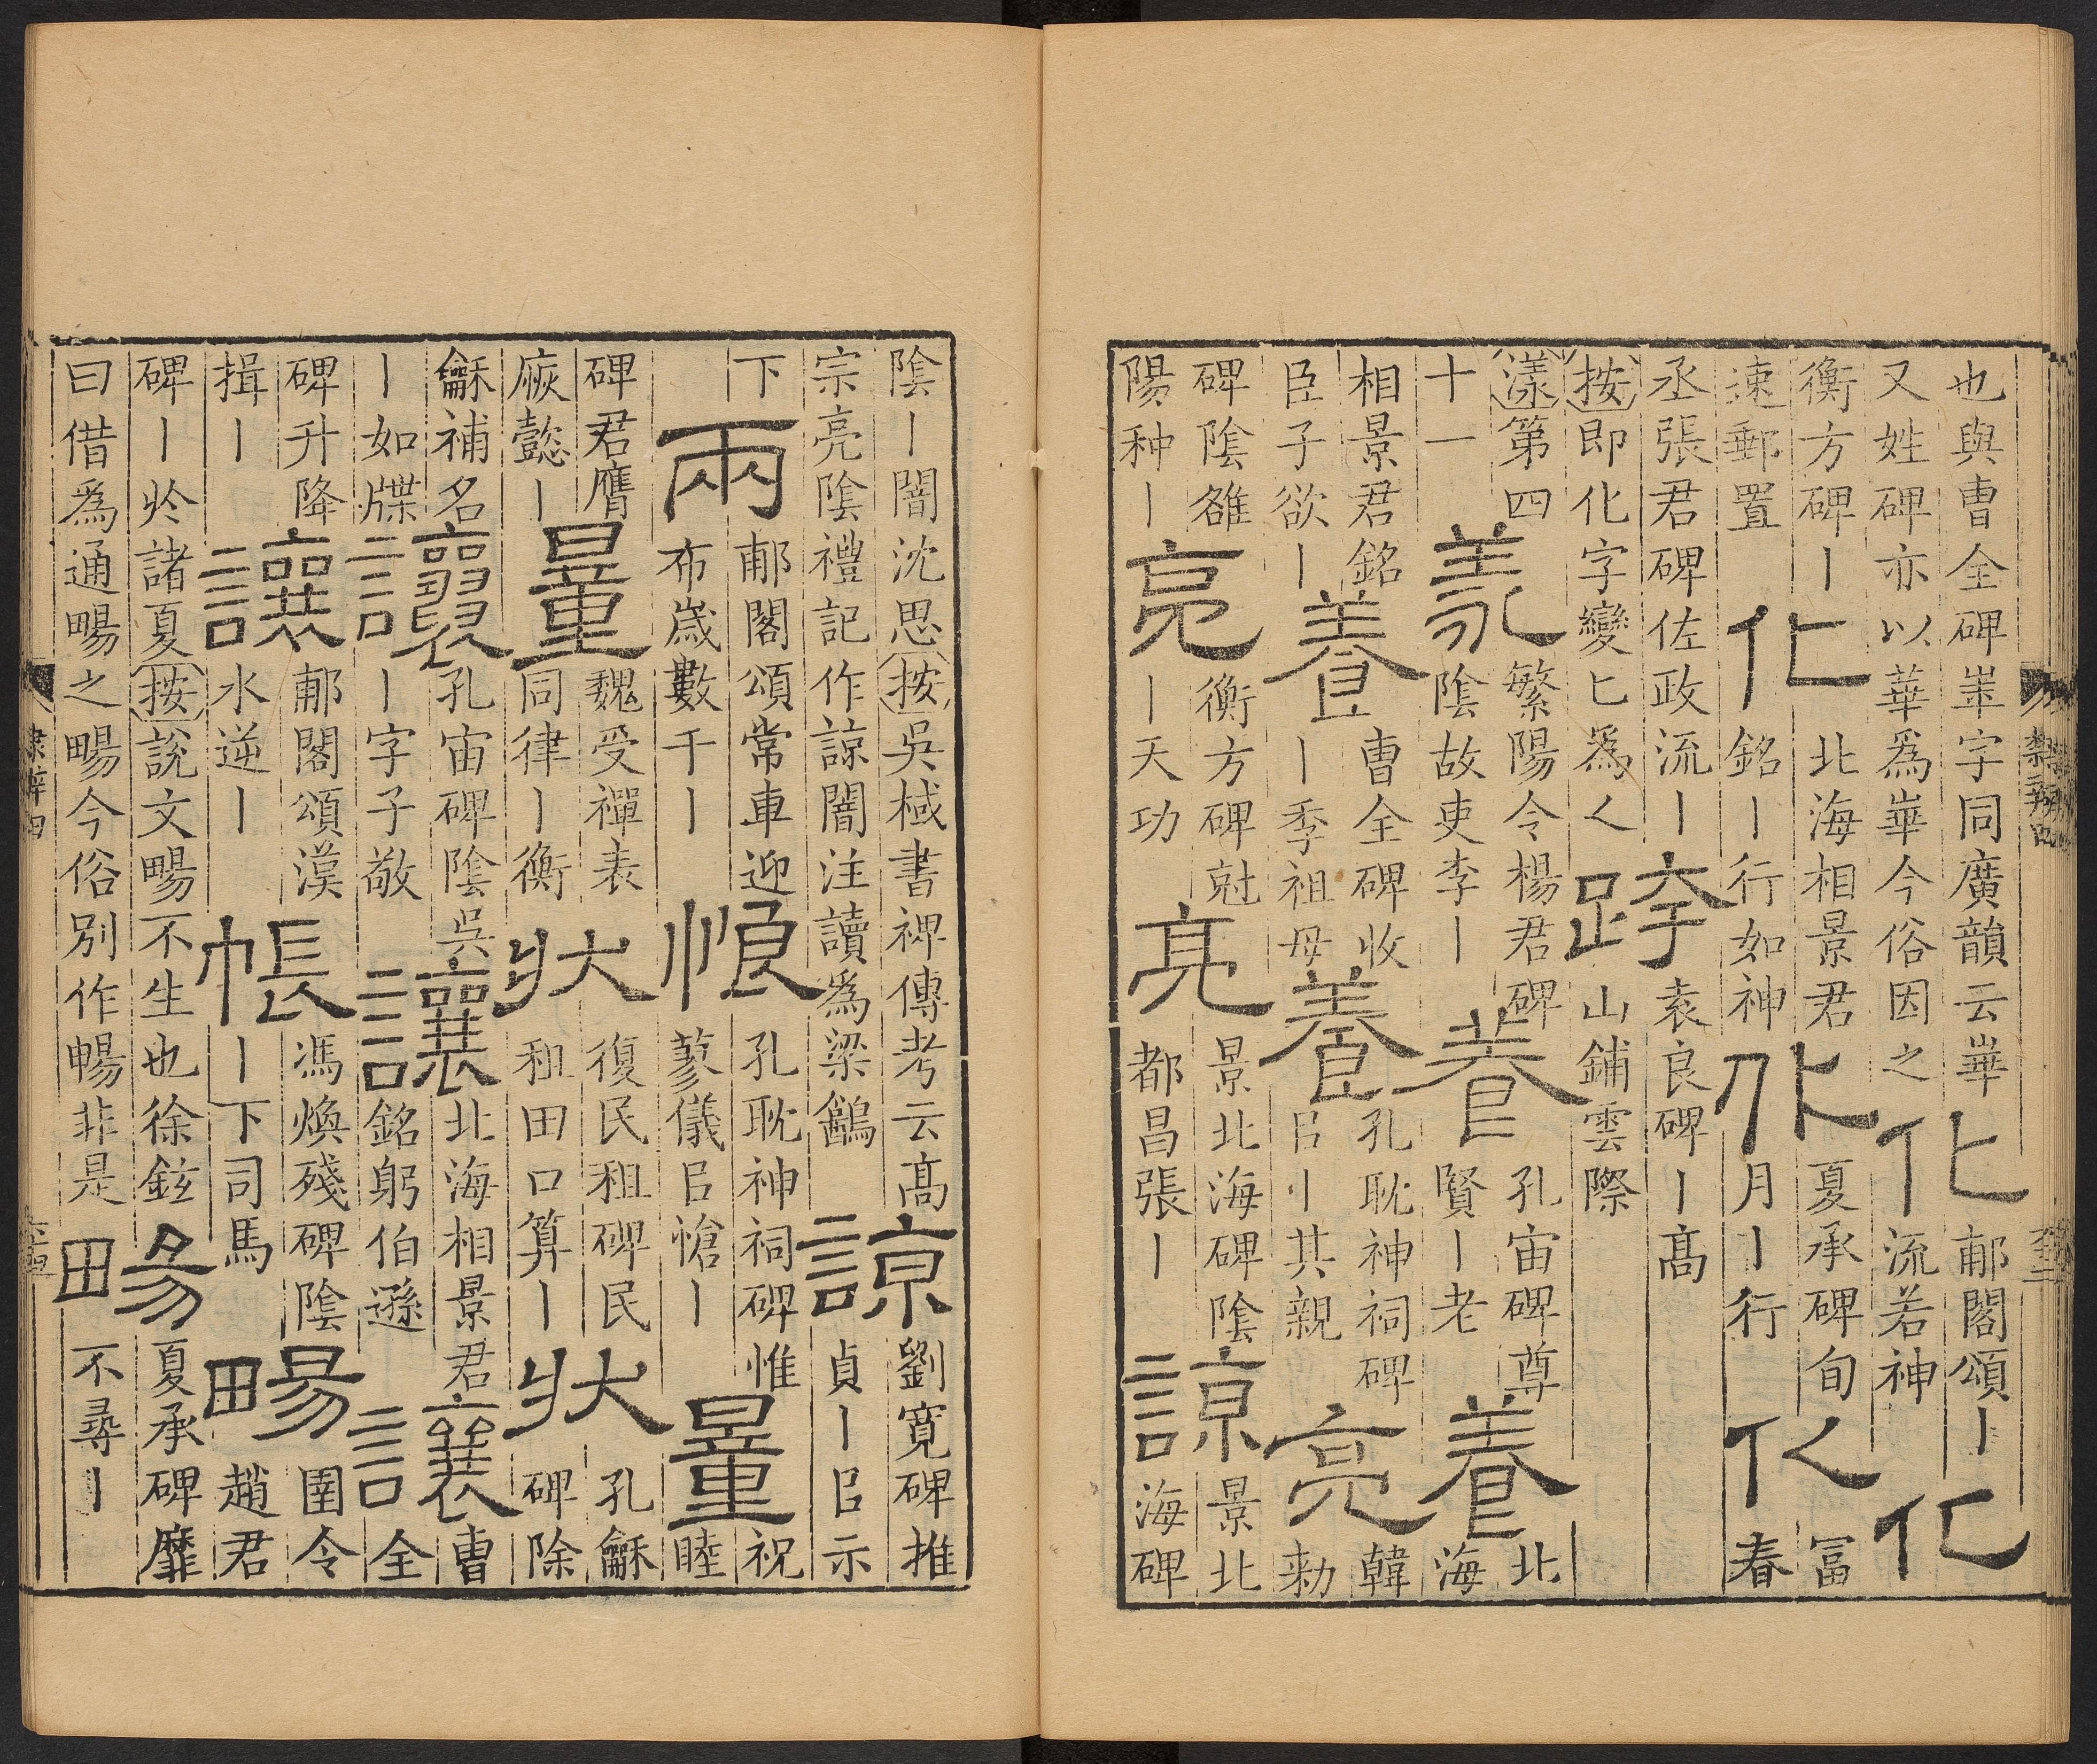 也與曹全碑崋字同廣韻云崋
又姓碑亦以華爲崋今俗因之
化
郙閣頌丨
流若神
化
衡方碑丨
速郵置
化
北海相景君
銘丨行如神
化
夏承碑旬
月丨行
化
富
春
丞張君碑佐政流丨
按即化字變匕爲乀
跨
袁良碑丨高
山鋪雲際
漾第四
十一
羕
繁陽令楊君碑
陰故吏李丨
養
孔宙碑尊
賢丨老
養
北
海
相景君銘
臣子欲丨
養
曹全碑收
丨季祖母
養
孔耽神祠碑
㠯丨其親
亮
韓
勑
碑陰雒
陽种丨
亮
衡方碑尅
丨天功
亮
景北海碑陰
都昌張丨
諒
景北
海碑
陰丨闇沈思按吳棫書裨傳考云高
宗亮陰禮記作諒闇注讀爲梁䳺
諒
劉寬碑推
貞丨㠯示
下
兩
郙閣頌常車迎
布歲數千丨
悢
孔耽神祠碑惟
蓼儀㠯愴丨
量
祝
睦
碑君膺
厥懿丨
量
魏受禪表
同律丨衡
狀
復民租碑民
租田口算丨
狀
孔龢
碑除
龢補名
丨如牒
讓
孔宙碑陰吳
丨字子敬
讓
北海相景君
銘躬伯遜
讓
曹
全
碑升降
揖丨
讓
郙閣頌漢
水逆丨
帳
馮煥殘碑陰
丨下司馬
畼
圉令
趙君
碑丨於諸夏按說文畼不生也徐鉉
曰借爲通畼之畼今俗別作暢非是
畼
夏承碑靡
不尋丨